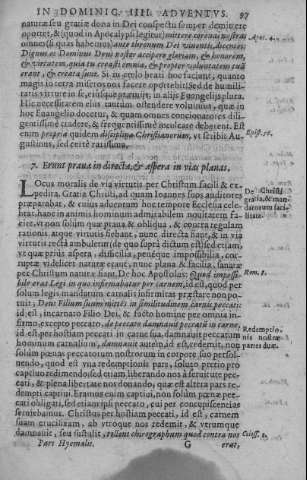 IN DOMINIC. IIII. ADVENTVS. 97
naturæ seu gratiæ dona in Dei conspectu semper demittere
oportet, & (quod in Apocalypsi legitur) mittere coronas nostras Apoc. 4.
omnes (si quas habemus) ante thronum Dei viuentis, dicentes:
Dignus es Domine Deus noster accipere gloriam, & honorem,
& virtutem, quia tu creasti omnia, & propter voluntatem tuā
erant, & creata sunt. Si in cœlo beati hoc faciunt, quanto
magis in terra mortales nos facere oportebit? Sed de humili-
tatis virtute, eiusque in alijs Euangelijs plura.
Hic necessitatem eius tantùm ostendere voluimus, quam in
hoc Euangelio docetur, & quam omnes concionatores dili-
gentissimè tradere, & frequentissimè inculcare debent. Est
enim propria quidem disciplina Christianorum, vt scribit Au- Epist.
gustinus, sed certè rarissima.
7. Erunt praua in directa, & aspera in vias planas.
LOcus moralis de via virtutis per Christum facili & ex-
pedita. Gratia Christi, ad quam Ioannes suos auditores De Christi
præparabat, & cuius adiutorio hoc tempore Ecclesia cele-
brat, hanc in animis hominum admirabilem nouitatem fa-
cit, vt non solùm quæ praua & obliqua, & contra regulam
rationis, atque virtutis fiebant, nunc directa fiant, & in via
virtutis recta ambulent (de quo suprà dictum est) sed etiam,
vt quæ priùs aspera, difficilia, penéque impossibilia, cor-
ruptæ videlicet naturæ erant, nunc plana & facilia, sanatæ
per Christum naturæ fiant. De hoc Apostolus: Quod impossi-
bile erat Legi in quo infirmabatur per carnem, id est, quod per Rom. 8.
solum legis mandatum carnalis infirmitas præstare non po-
tuit, Deus Filium suum mittens in similitudinem carnis peccati:
id est, incarnato Filio Dei, & facto homine per omnia infir-
mo, excepto peccato, de peccato damnauit peccatum in carne:
id est, per hostiam peccati in carne sua, damnauit peccatum Redemptio-
hominum carnalium, damnauit autem, id est, redemit, non nis nostræ
solùm pœnas peccatorum nostrorum in corpore suo persol- partes duæ.
uendo, quod est vna redemptionis pars, soluto pretio pro
captiuo redimendo; sed etiam liberando nos à seruitute pec-
cati, & plena libertate nos donando, quæ est altera pars re-
dempti captiui. Eramus enim captiui, non solùm pœnæ pec-
catis obligati, sed etiam ipsi peccato, cui per concupiscencias
seruiebamus. Christus per hostiam peccati, id est, carnem
suam crucifixam, ab vtroque nos redemit, & verumque
damnauit, seu sustulit, tollens chirographum quod contra nos Coloss. 2.
Pars Hyemalis. G erat,